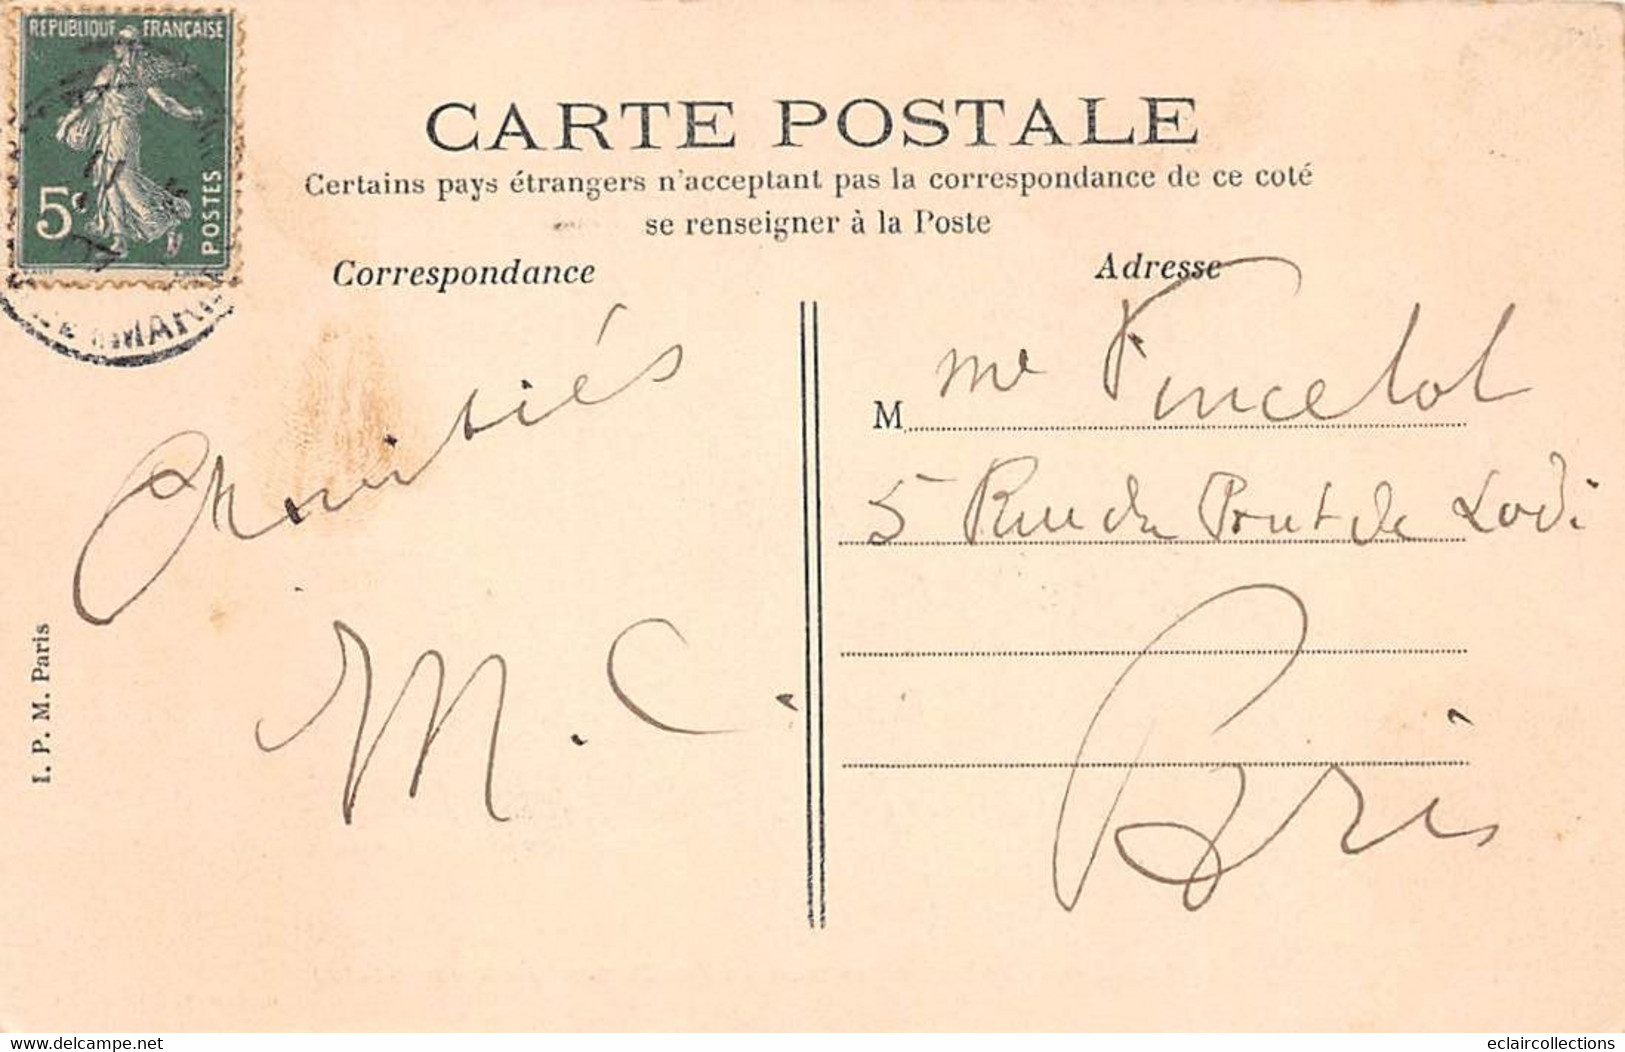 REPUBLIQUE FRANÇAISE
5c
POSTES
CARTE POSTALE
Certains pays étrangers n'acceptant pas la correspondance de ce coté
se renseigner à la Poste
Correspondance
Adresse
Amitiés
M. C.
M me Vincelot
5 Rue du Pont de Lodi
Paris
I. P. M. Paris
www.delcampe.net
eclaircollections